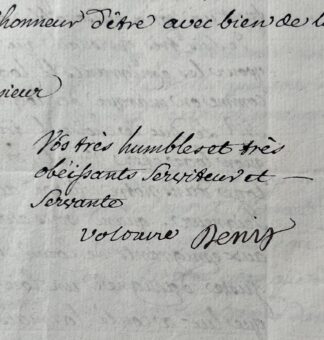 honneur d'être avec bien de l
sieur
Vos très humbles et très
obéissants serviteur et —
servante
Voltaire Denis